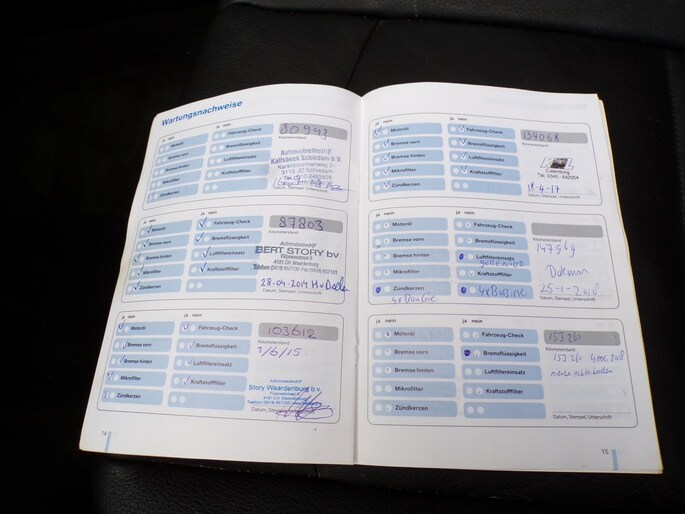 Wartungsnachweise
ja nein
Motoröl
Bremse vorn
Bremse hinten
Mikrofilter
Zündkerzen
ja nein
Fahrzeug-Check
Bremsflüssigkeit
Luftfiltereinsatz
Kraftstofffilter
80943
Kilometerstand
Automobielbedrijf
Kalfsbeek Schiedam b.v.
3115 JD Schiedam
ja nein
Motoröl
Bremse vorn
Bremse hinten
Mikrofilter
Zündkerzen
ja nein
Fahrzeug-Check
Bremsflüssigkeit
Luftfiltereinsatz
Kraftstofffilter
87803
Kilometerstand
Automobielbedrijf
BERT STORY bv
4181 CH Waardenburg
28-04-2014
Datum, Stempel, Unterschrift
ja nein
Motoröl
Bremse vorn
Bremse hinten
Mikrofilter
Zündkerzen
ja nein
Fahrzeug-Check
Bremsflüssigkeit
Luftfiltereinsatz
Kraftstofffilter
103612
Kilometerstand
/6/15.
Automobielbedrijf
Story Waardenburg b.v.
4181 CH Waardenburg
Datum, Stempel, Unterschrift
14
ja nein
Motoröl
Bremse vorn
Bremse hinten
Mikrofilter
Zündkerzen
ja nein
Fahrzeug-Check
Bremsflüssigkeit
Luftfiltereinsatz
Kraftstofffilter
134068
Kilometerstand
Culemborg
18-4-17
Datum, Stempel, Unterschrift
ja nein
Motoröl
Bremse vorn
Bremse hinten
Mikrofilter
Zündkerzen
4x
ja nein
Fahrzeug-Check
Bremsflüssigkeit
Luftfiltereinsatz
Kraftstofffilter
4x
Kilometerstand
25-1-2018
Datum, Stempel, Unterschrift
ja nein
Motoröl
Bremse vorn
Bremse hinten
Mikrofilter
Zündkerzen
ja nein
Fahrzeug-Check
Bremsflüssigkeit
Luftfiltereinsatz
Kraftstofffilter
Kilometerstand
Datum, Stempel, Unterschrift
15